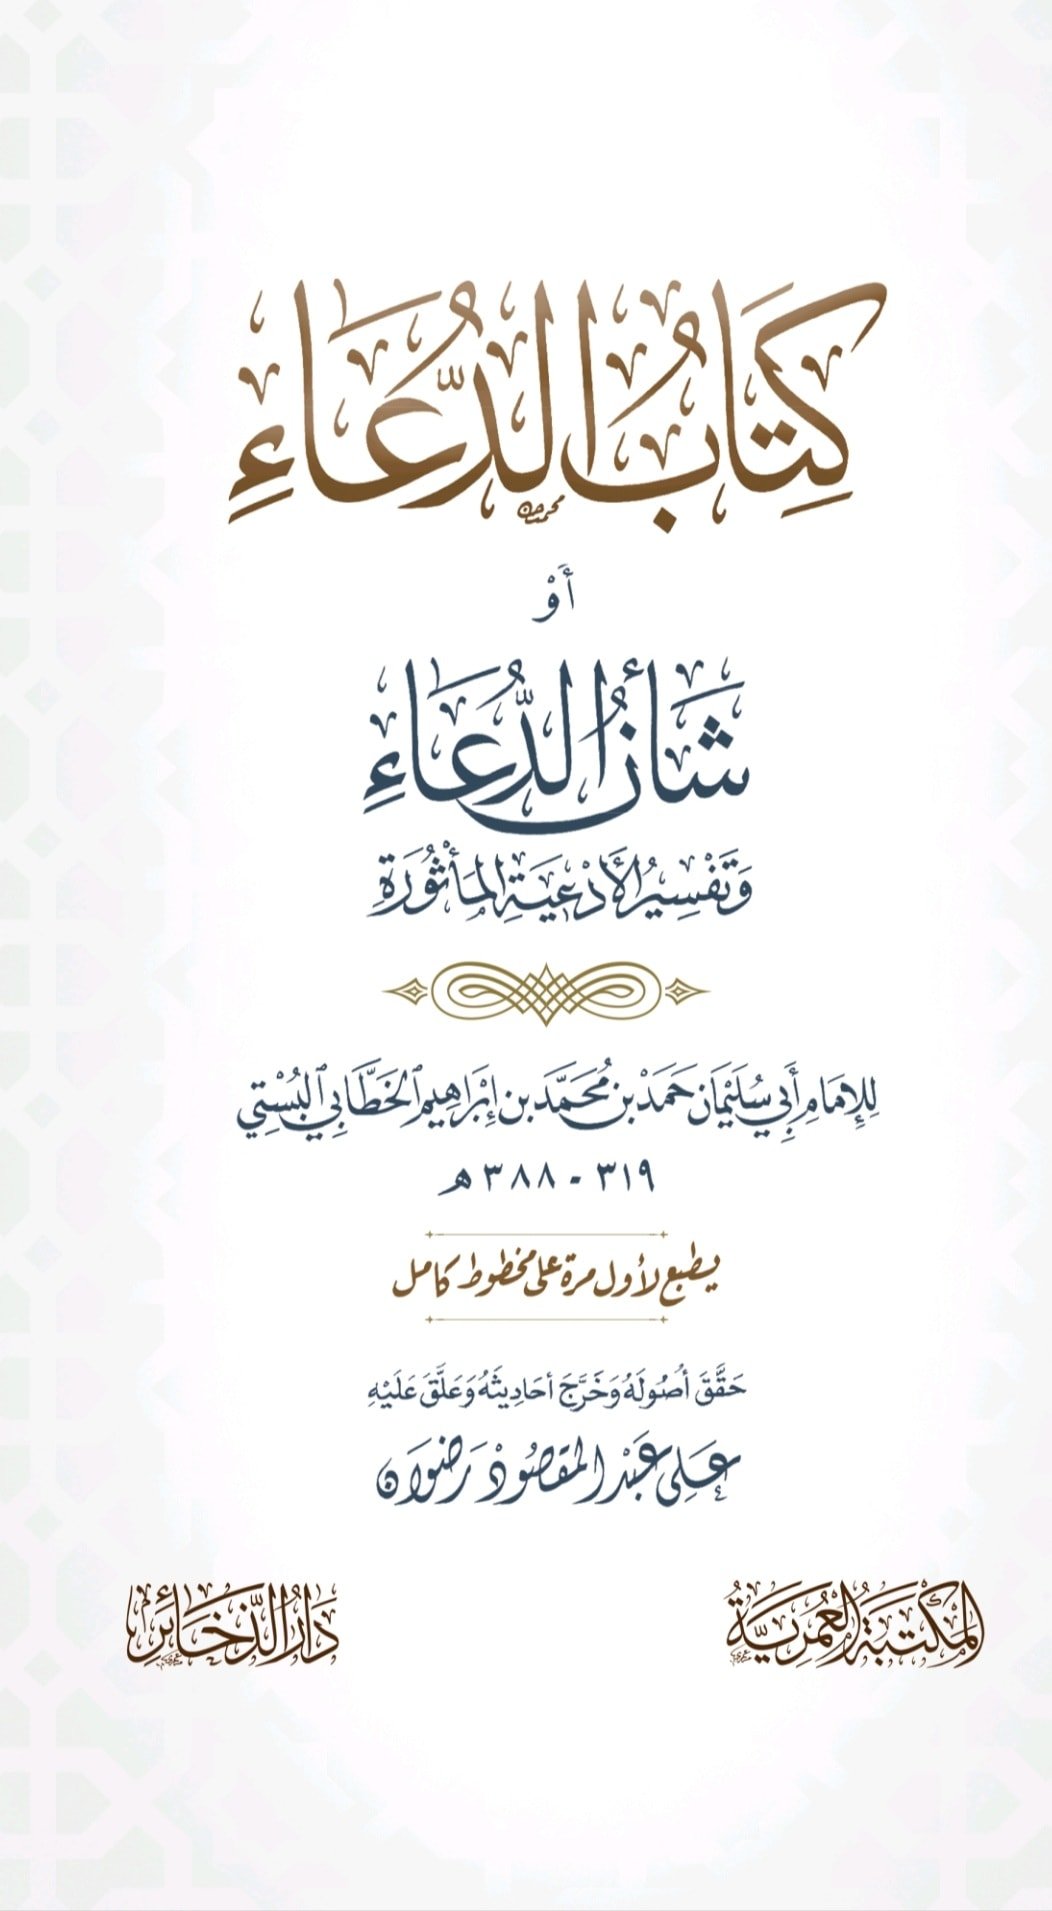 كِتَابُ الدُّعَاءِ
أَوْ
شَأْنُ الدُّعَاءِ
وَتَفْسِيرُ الأَدْعِيَةِ المَأْثُورَةِ
لِلإِمَامِ أَبِي سُلَيْمَانَ حَمَدْ بْنِ مُحَمَّد بن إِبْرَاهِيم الخَطَّابِي البُسْتِي
٣١٩ - ٣٨٨ هـ
يطبع لأول مرة على مخطوط كامل
حَقَّقَ أُصُولَهُ وَخَرَّجَ أحَادِيثَهُ وَعَلَّقَ عَلَيْهِ
عَلِي عَبْد المَقصُودْ رَضوَان
المَكْتَبَةُ العُمَرِيَّةُ
دَارُ الذَّخَائِرِ